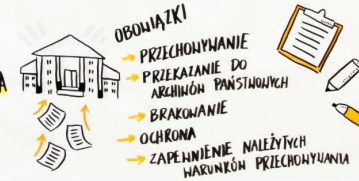 A
OBOWIĄZKI
PRZECHOWYWANIE
PRZEKAZANIE DO
ARCHIWÓW PAŃSTWOWYCH
BRAKOWANIE
OCHRONA
ZAPEWNIENIE NALEŻYTYCH
WARUNKÓW PRZECHOWYWANIA